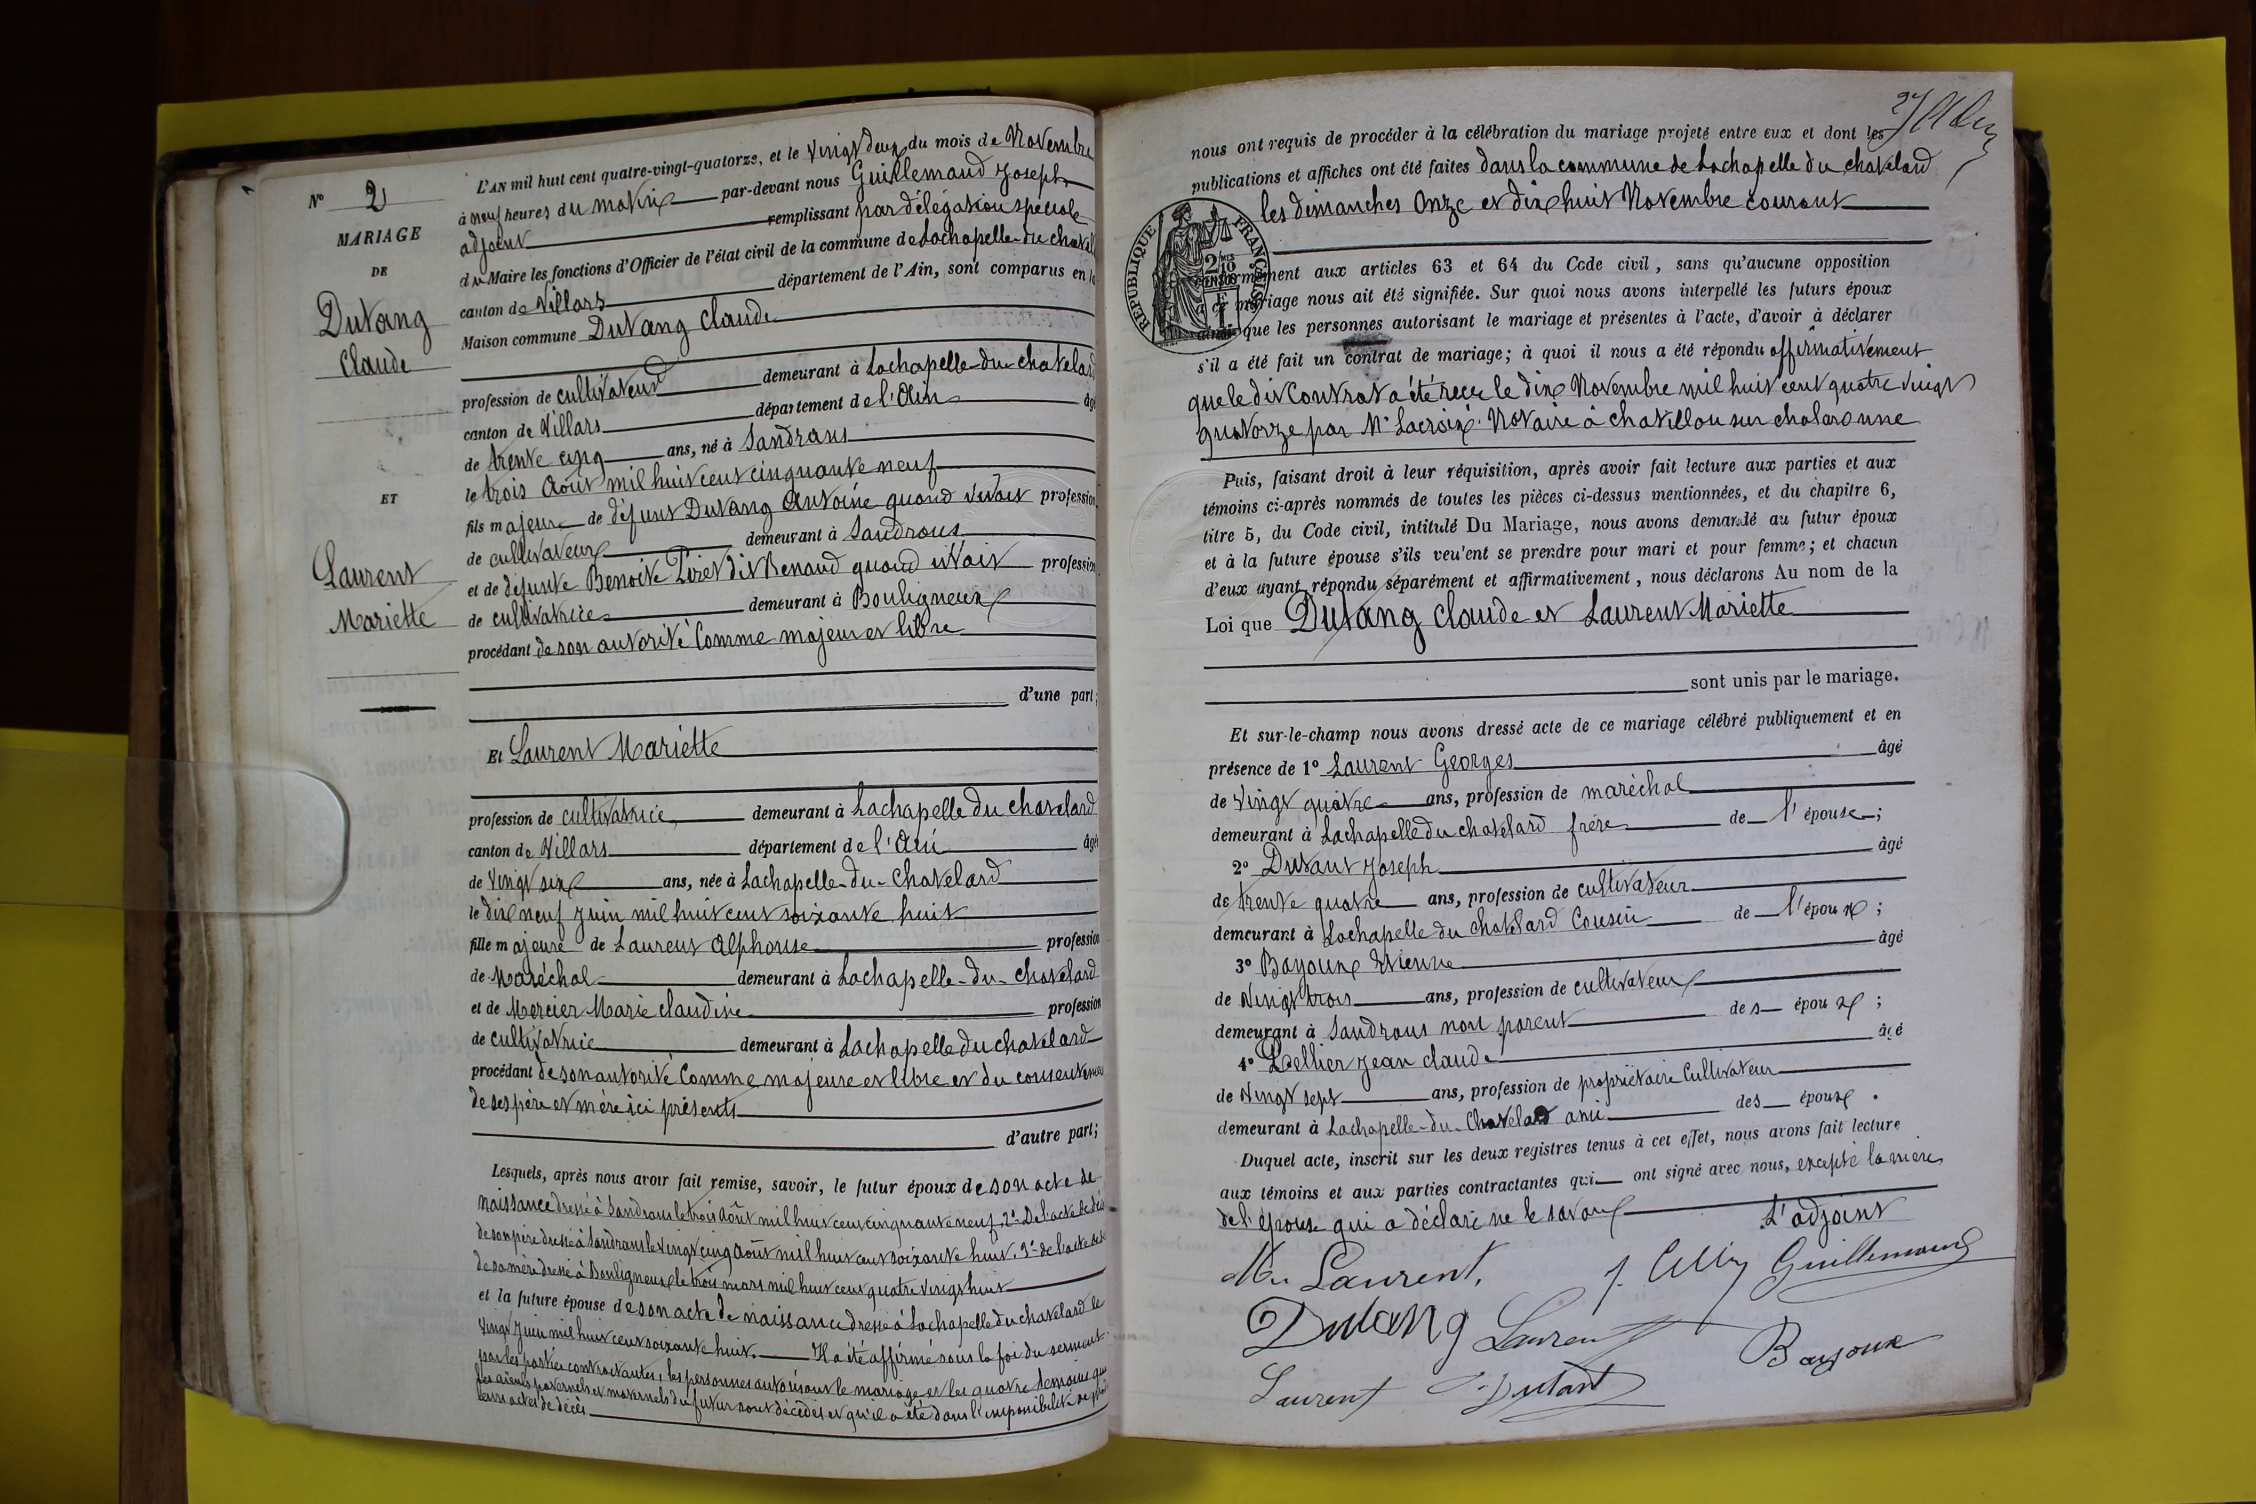 N° 2
MARIAGE
DE
Dutang
Claude
ET
Laurent
Mariette
L'AN mil huit cent quatre-vingt-quatorze, et le vingt deux du mois de Novembre
à neuf heures du matin par-devant nous Guillemaud Joseph
adjoint remplissant par délégation spéciale
du Maire les fonctions d'Officier de l'état civil de la commune de Lachapelle-du-chatel
canton de Villars département de l'Ain, sont comparus en la
Maison commune Dutang Claude
profession de cultivateur demeurant à Lachapelle-du-chatelard
canton de Villars département de l'Ain âgé
de trente cinq ans, né à Sandrans
le trois Août mil huit cent cinquante neuf
fils majeur de défunt Dutang Antoine quand vivait profession
de cultivateur demeurant à Sandrans
et de défunte Benoite Piret dit Benaud quand vivait profession
de cultivatrice demeurant à Bouligneux
procédant de son autorité Comme majeur et libre
d'une part;
Et Laurent Mariette
profession de cultivatrice demeurant à Lachapelle du chatelard
canton de Villars département de l'Ain âgé
de vingt six ans, née à Lachapelle-du-Chatelard
le dix neuf Juin mil huit cent soixante huit
fille majeure de Laurent Alphonse profession
de Maréchal demeurant à Lachapelle-du-chatelard
et de Mercier Marie Claudine profession
de cultivatrice demeurant à Lachapelle du chatelard
procédant de son autorité Comme majeure et libre et du consentement
de ses père et mère ici présents
d'autre part;
Lesquels, après nous avoir fait remise, savoir, le futur époux de son acte de
naissance dressé à Sandrans le trois Août mil huit cent cinquante neuf, 2° De l'acte de déc
de son père dressé à Sandrans le vingt cinq Août mil huit cent soixante huit. 3° de l'acte de
de sa mère dressé à Bouligneux le trois mars mil huit cent quatre vingt huit
et la future épouse de son acte de naissance dressé à Lachapelle du chatelard le
vingt Juin mil huit cent soixante huit. Il a été affirmé sous la foi du serment
par les parties contractantes, les personnes autorisant le mariage et les quatre témoins que
les aïeuls paternels et maternels du futur sont décédés et qu'il a été dans l'impossibilité de
leurs actes de décès
nous ont requis de procéder à la célébration du mariage projeté entre eux et dont les
publications et affiches ont été faites dans la commune de Lachapelle du chatelard
les dimanches Onze et dix huit Novembre courant
RÉPUBLIQUE FRANÇAISE
conformément aux articles 63 et 64 du Code civil, sans qu'aucune opposition
à ce mariage nous ait été signifiée. Sur quoi nous avons interpellé les futurs époux
ainsi que les personnes autorisant le mariage et présentes à l'acte, d'avoir à déclarer
s'il a été fait un contrat de mariage; à quoi il nous a été répondu affirmativement
que le dit Contrat a été reçu le dix Novembre mil huit cent quatre vingt
quatorze par Me Lacroix Notaire à chatillon sur chalaronne
Puis, faisant droit à leur réquisition, après avoir fait lecture aux parties et aux
témoins ci-après nommés de toutes les pièces ci-dessus mentionnées, et du chapitre 6,
titre 5, du Code civil, intitulé Du Mariage, nous avons demandé au futur époux
et à la future épouse s'ils veulent se prendre pour mari et pour femme; et chacun
d'eux ayant répondu séparément et affirmativement, nous déclarons Au nom de la
Loi que Dutang Claude et Laurent Mariette
sont unis par le mariage.
Et sur-le-champ nous avons dressé acte de ce mariage célébré publiquement et en
présence de 1° Laurent Georges âgé
de vingt quatre ans, profession de maréchal
demeurant à Lachapelle du chatelard frère de l'épouse;
2° Dutant Joseph âgé
de trente quatre ans, profession de cultivateur
demeurant à Lachapelle du chatelard Cousin de l'époux;
3° Bayoux Etienne âgé
de Vingt trois ans, profession de cultivateur
demeurant à Sandrans non parent des époux;
4° Pellier Jean Claude âgé
de Vingt sept ans, profession de propriétaire Cultivateur
demeurant à Lachapelle-du-Chatelard ami des époux.
Duquel acte, inscrit sur les deux registres tenus à cet effet, nous avons fait lecture
aux témoins et aux parties contractantes qui ont signé avec nous, excepté la mère
de l'épouse qui a déclaré ne le savoir
L'adjoint
Mte Laurent.
Guillemaud
Dutang
Laurent
Bayoux
Laurent
J. Dutant